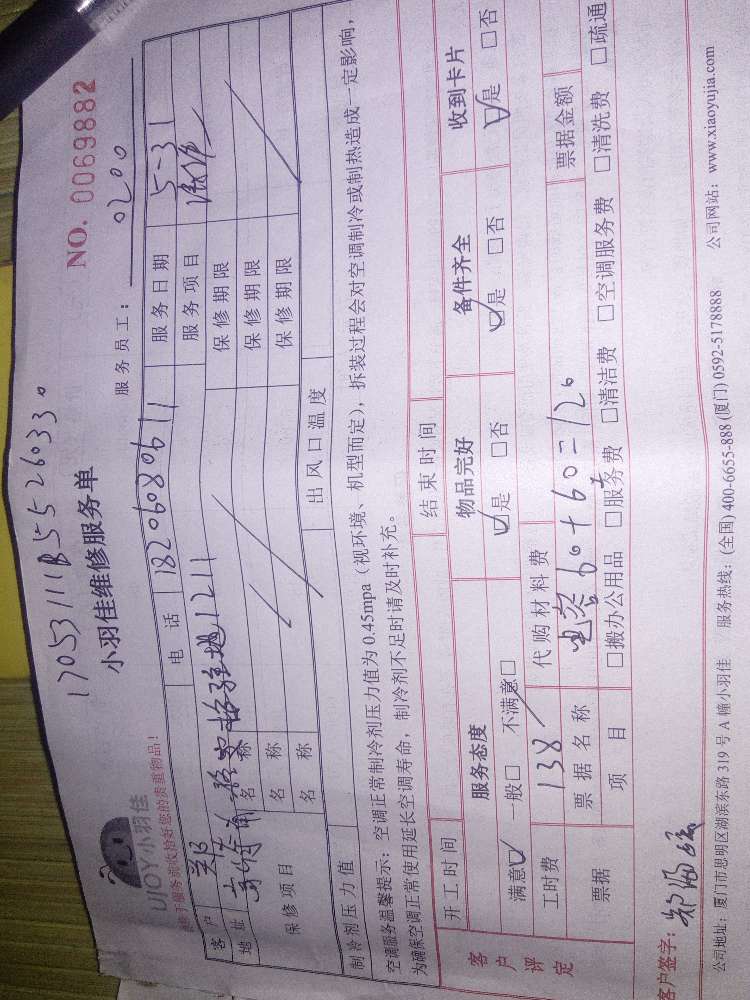 170531111B55260330
NO. 0069882
UJOY小羽佳
小羽佳维修服务单
服务员工： 0200
请于服务前收拾好您的贵重物品！
客户 电话 18206080611 服务日期 5-31
地址 1211 服务项目
保修项目 名称 保修期限
名称 保修期限
名称 保修期限
制冷剂压力值 出风口温度
空调服务温馨提示：空调正常制冷剂压力值为 0.45mpa（视环境、机型而定），拆装过程会对空调制冷或制热造成一定影响，
为确保空调正常使用延长空调寿命，制冷剂不足时请及时补充。
开工时间 结束时间
客户评定 服务态度 物品完好 备件齐全 收到卡片
满意☑ 一般□ 不满意□ ☑是 □否 ☑是 □否 ☑是 □否
工时费 138 代购材料费 电容60+60=120
票据 票据名称 票据金额
项目 □搬办公用品 □服务费 □清洁费 □空调服务费 □清洗费 □疏通
客户签字：
公司地址：厦门市思明区湖滨东路 319 号 A 幢小羽佳 服务热线：(全国) 400-6655-888 (厦门) 0592-5178888 公司网站：www.xiaoyujia.com